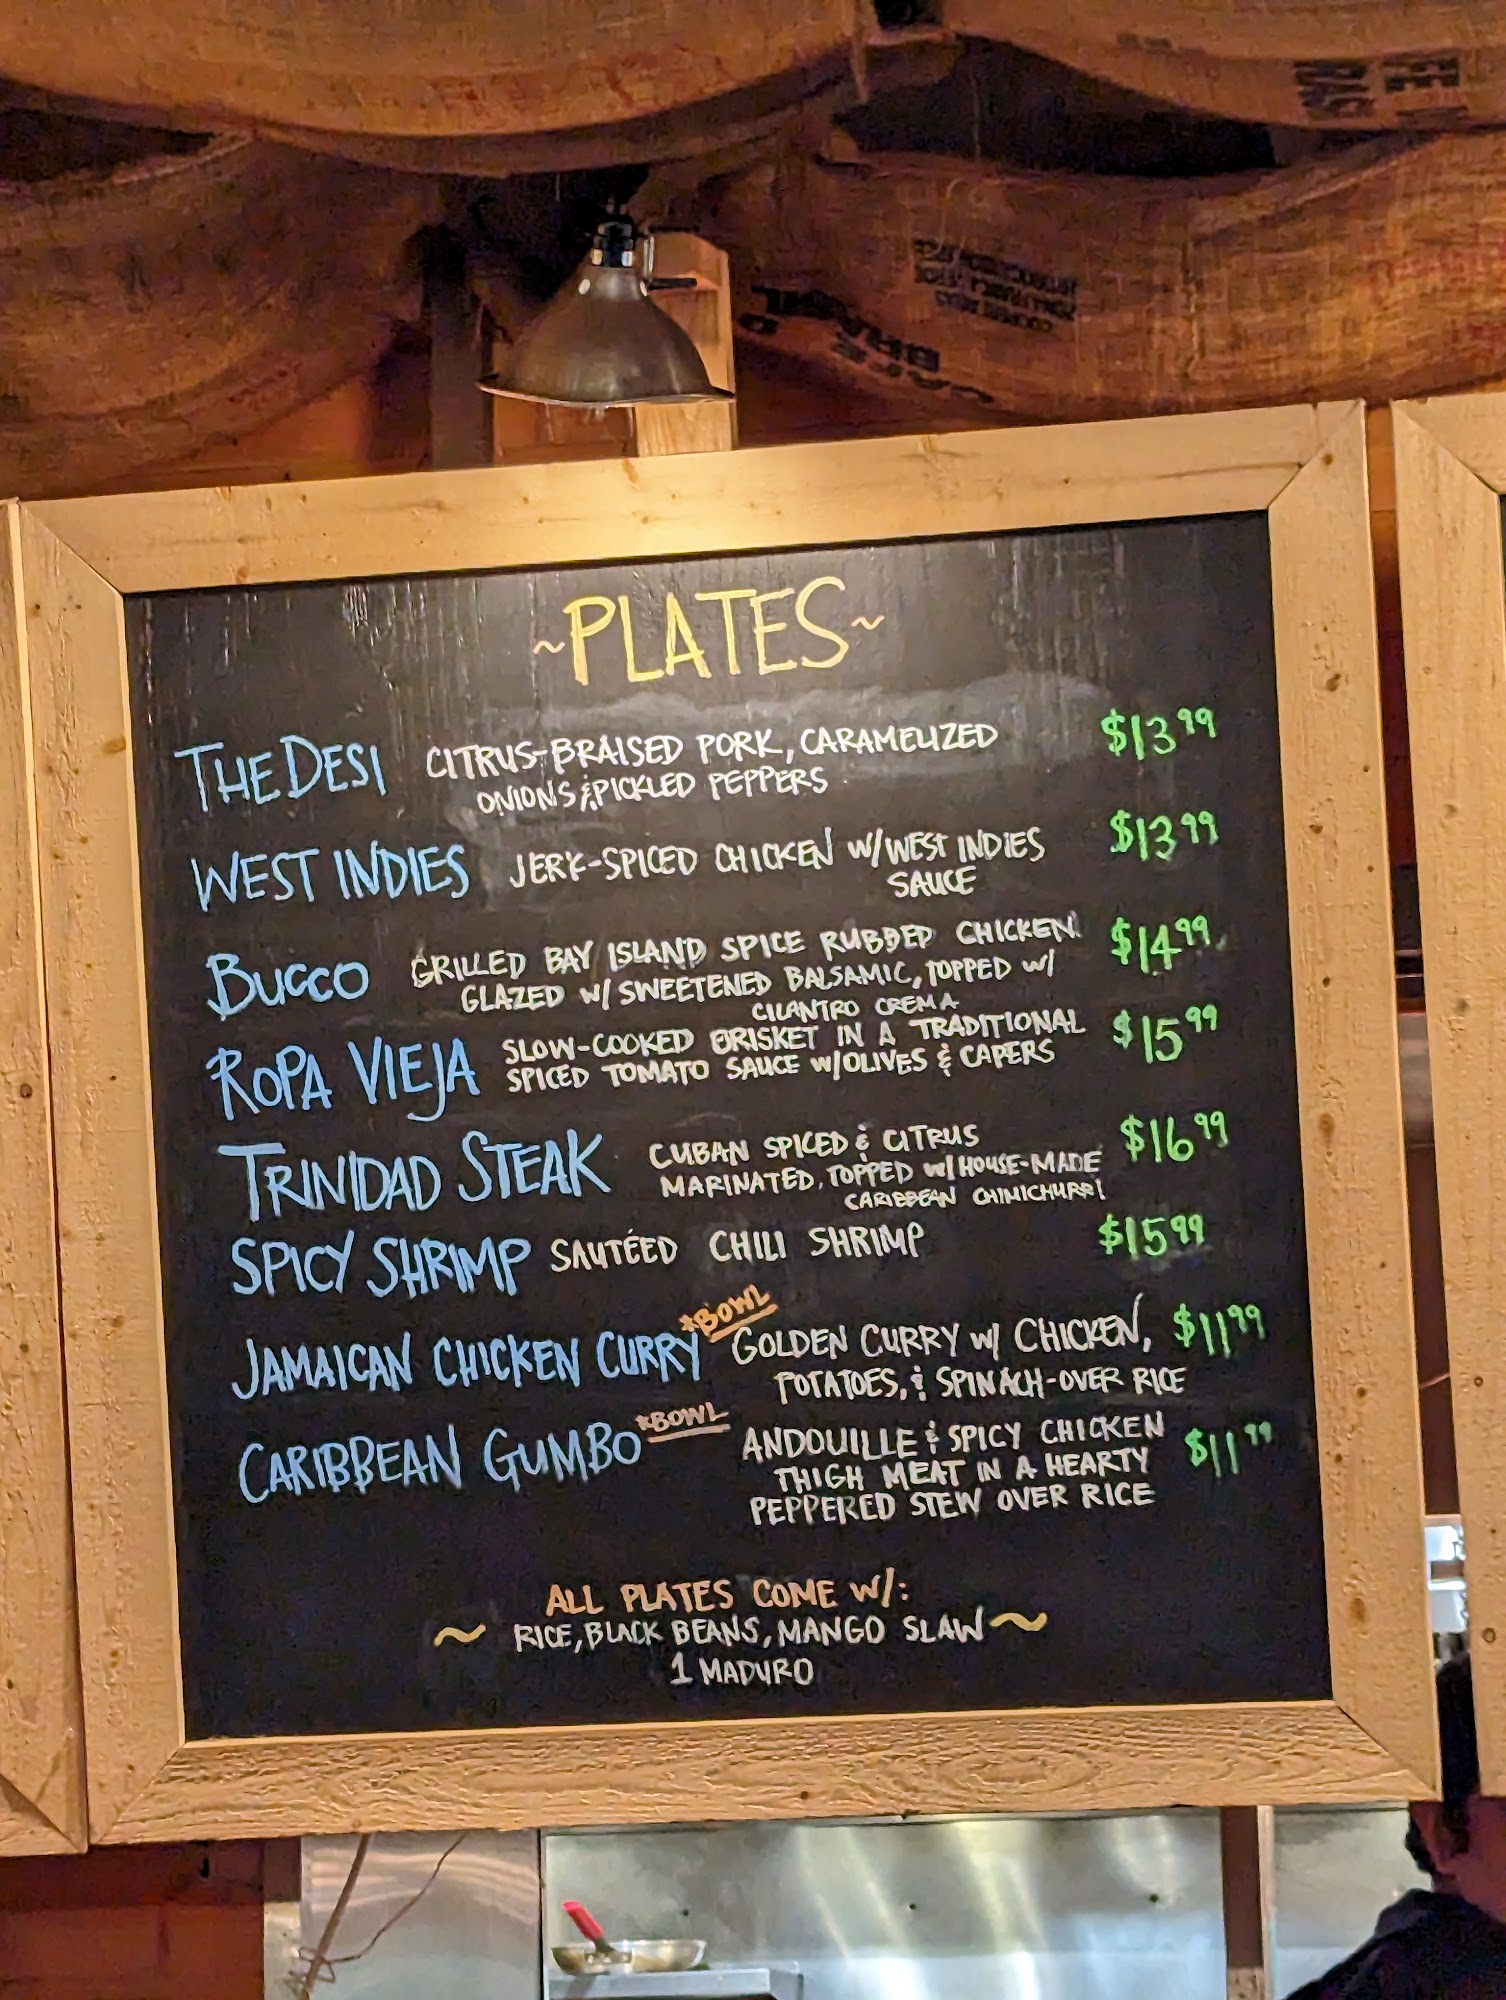 ~PLATES~
THE DESI CITRUS-BRAISED PORK, CARAMELIZED $13.99
ONIONS & PICKLED PEPPERS
WEST INDIES JERK-SPICED CHICKEN W/WEST INDIES $13.99
SAUCE
BUCCO GRILLED BAY ISLAND SPICE RUBBED CHICKEN $14.99
GLAZED W/ SWEETENED BALSAMIC, TOPPED W/
CILANTRO CREMA
ROPA VIEJA SLOW-COOKED BRISKET IN A TRADITIONAL $15.99
SPICED TOMATO SAUCE W/OLIVES & CAPERS
TRINIDAD STEAK CUBAN SPICED & CITRUS $16.99
MARINATED, TOPPED W/ HOUSE-MADE
CARIBBEAN CHIMICHURRI
SPICY SHRIMP SAUTÉED CHILI SHRIMP $15.99
JAMAICAN CHICKEN CURRY *BOWL GOLDEN CURRY W/ CHICKEN, $11.99
POTATOES, & SPINACH-OVER RICE
CARIBBEAN GUMBO *BOWL ANDOUILLE & SPICY CHICKEN $11.99
THIGH MEAT IN A HEARTY
PEPPERED STEW OVER RICE
ALL PLATES COME W/:
~ RICE, BLACK BEANS, MANGO SLAW ~
1 MADURO